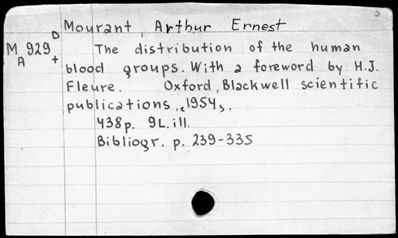 Mourant, Arthur Ernest
M 929 D
A +
The distribution of the human
blood groups. With a foreword by H.J.
Fleure. Oxford, Blackwell scientific
publications, <1954>.
438p. 9L. ill.
Bibliogr. p. 239-335